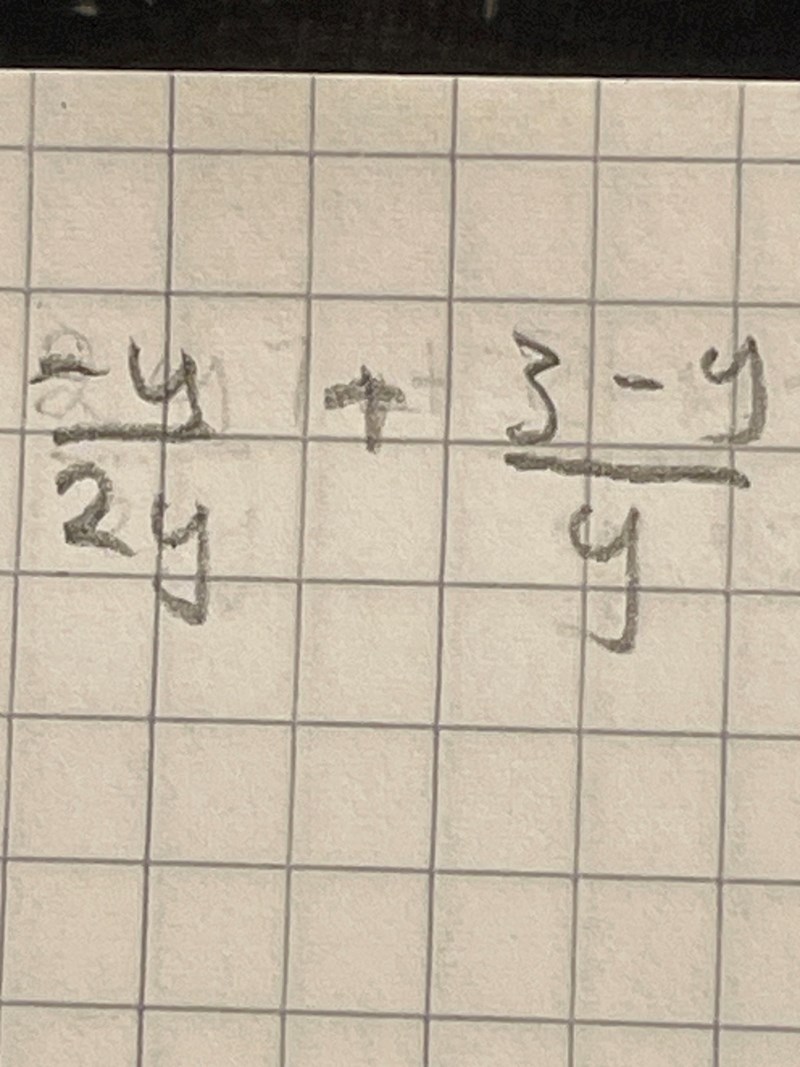 -y/2y + 3-y/y